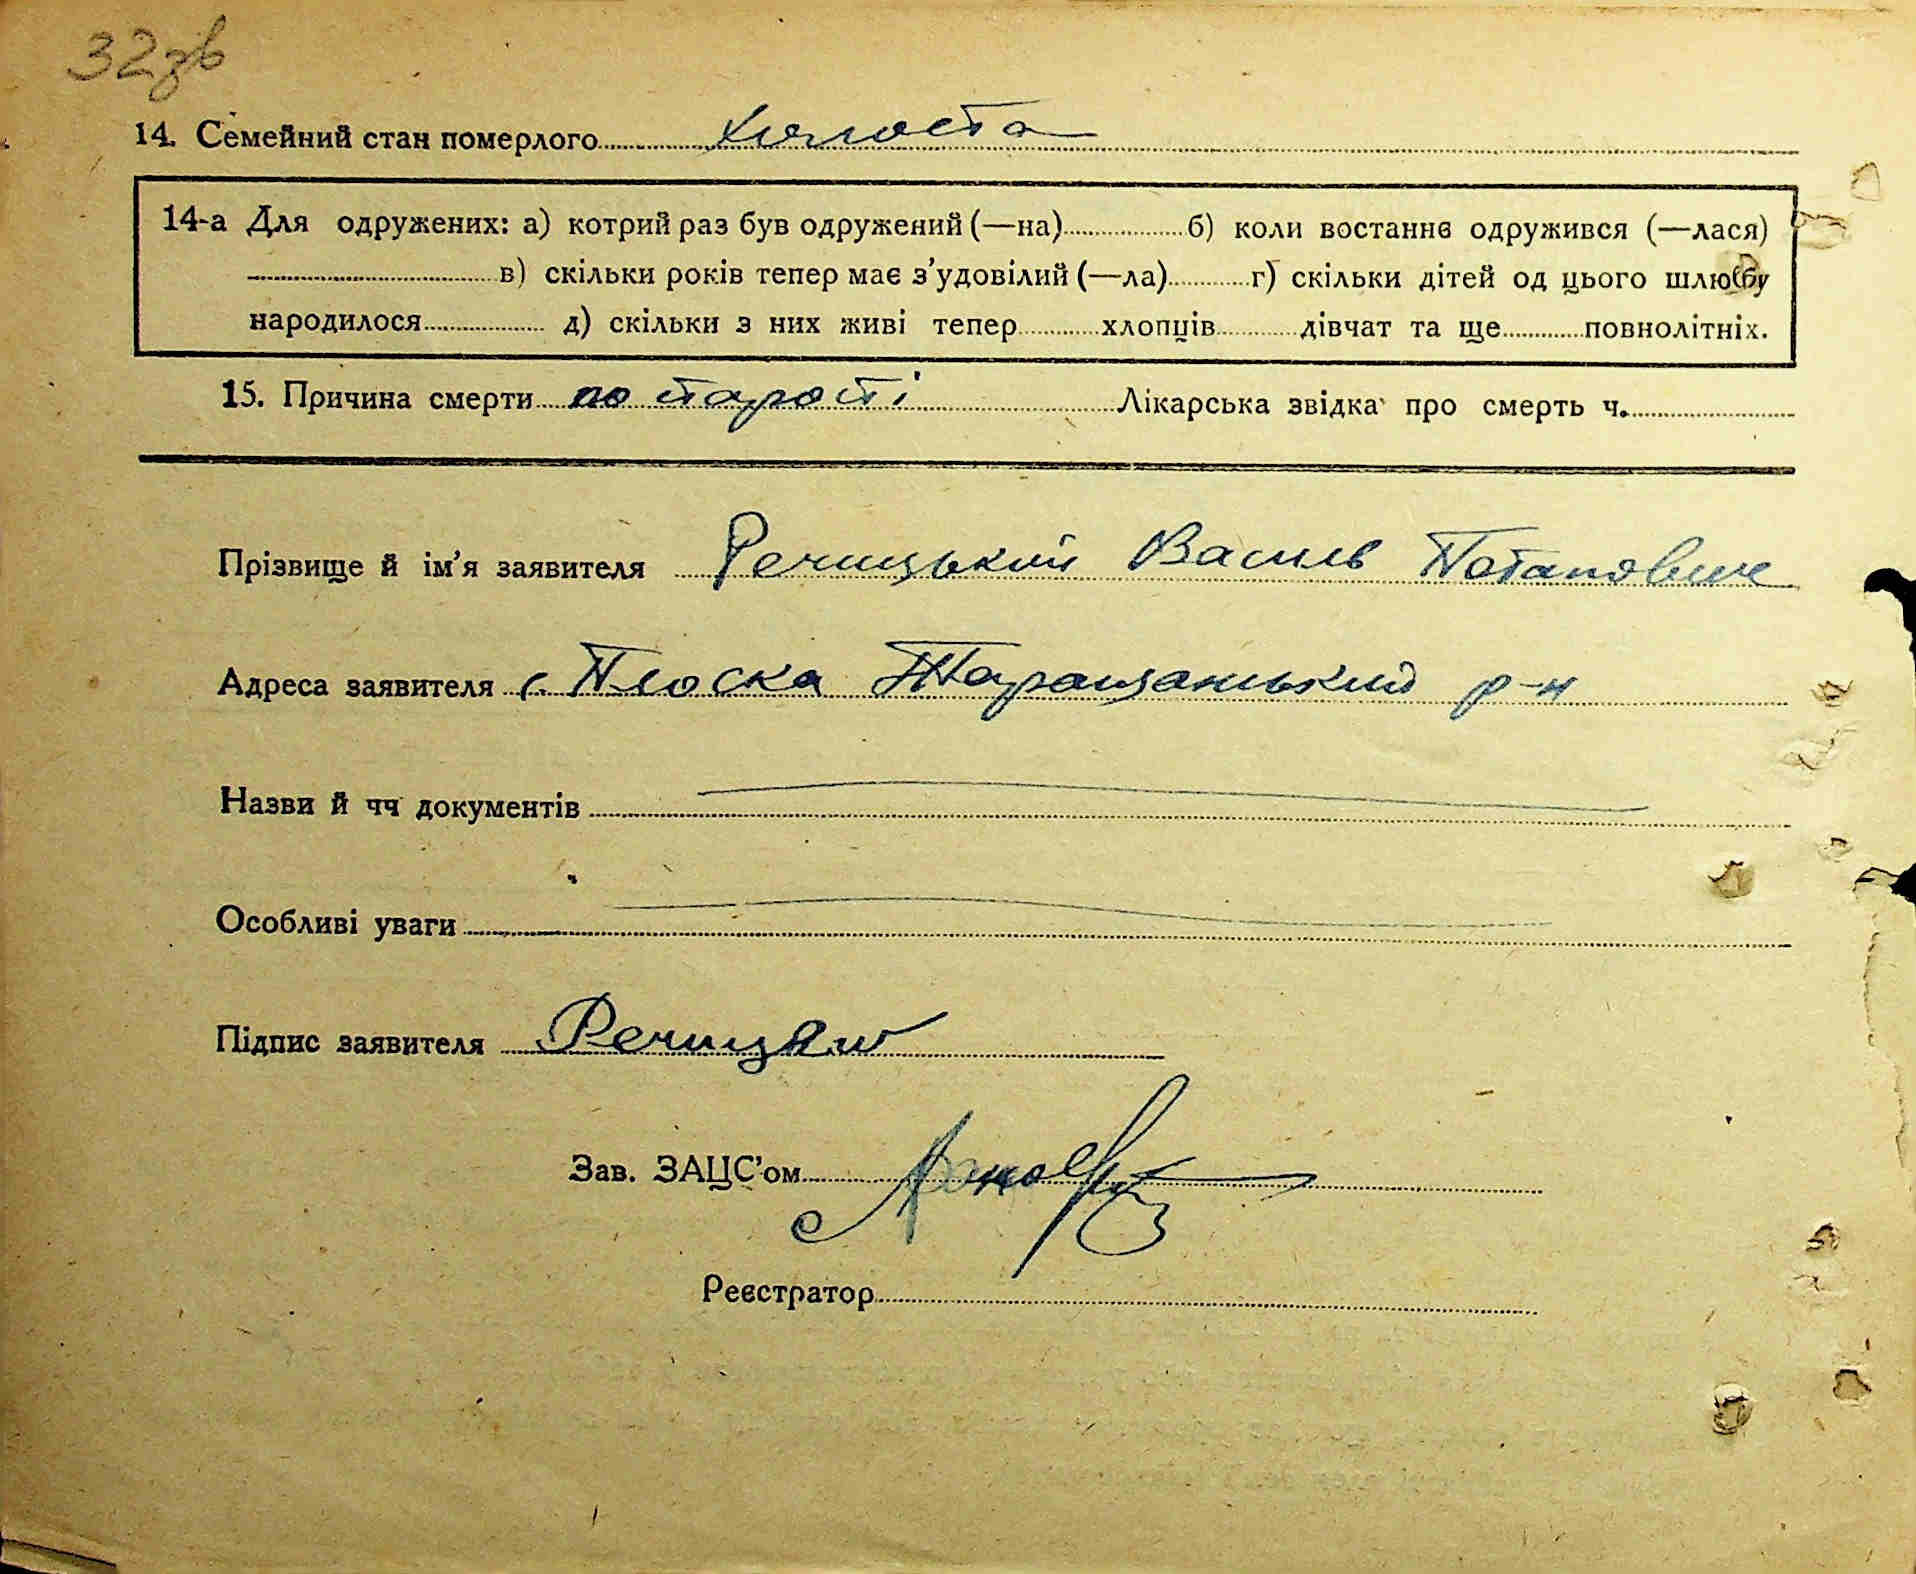 32зв
14. Семейний стан померлого холоста
14-а Для одружених: а) котрий раз був одружений (—на) б) коли востаннє одружився (—лася)
в) скільки років тепер має з’удовілий (—ла) г) скільки дітей од цього шлюбу
народилося д) скільки з них живі тепер хлопців дівчат та ще повнолітніх.
15. Причина смерти по старості Лікарська звідка про смерть ч.
Прізвище й ім’я заявителя Речицький Василь Потапович
Адреса заявителя с. Плоска Таращанський р-н
Назви й чч документів
Особливі уваги
Підпис заявителя Речицький
Зав. ЗАЦС’ом
Реєстратор